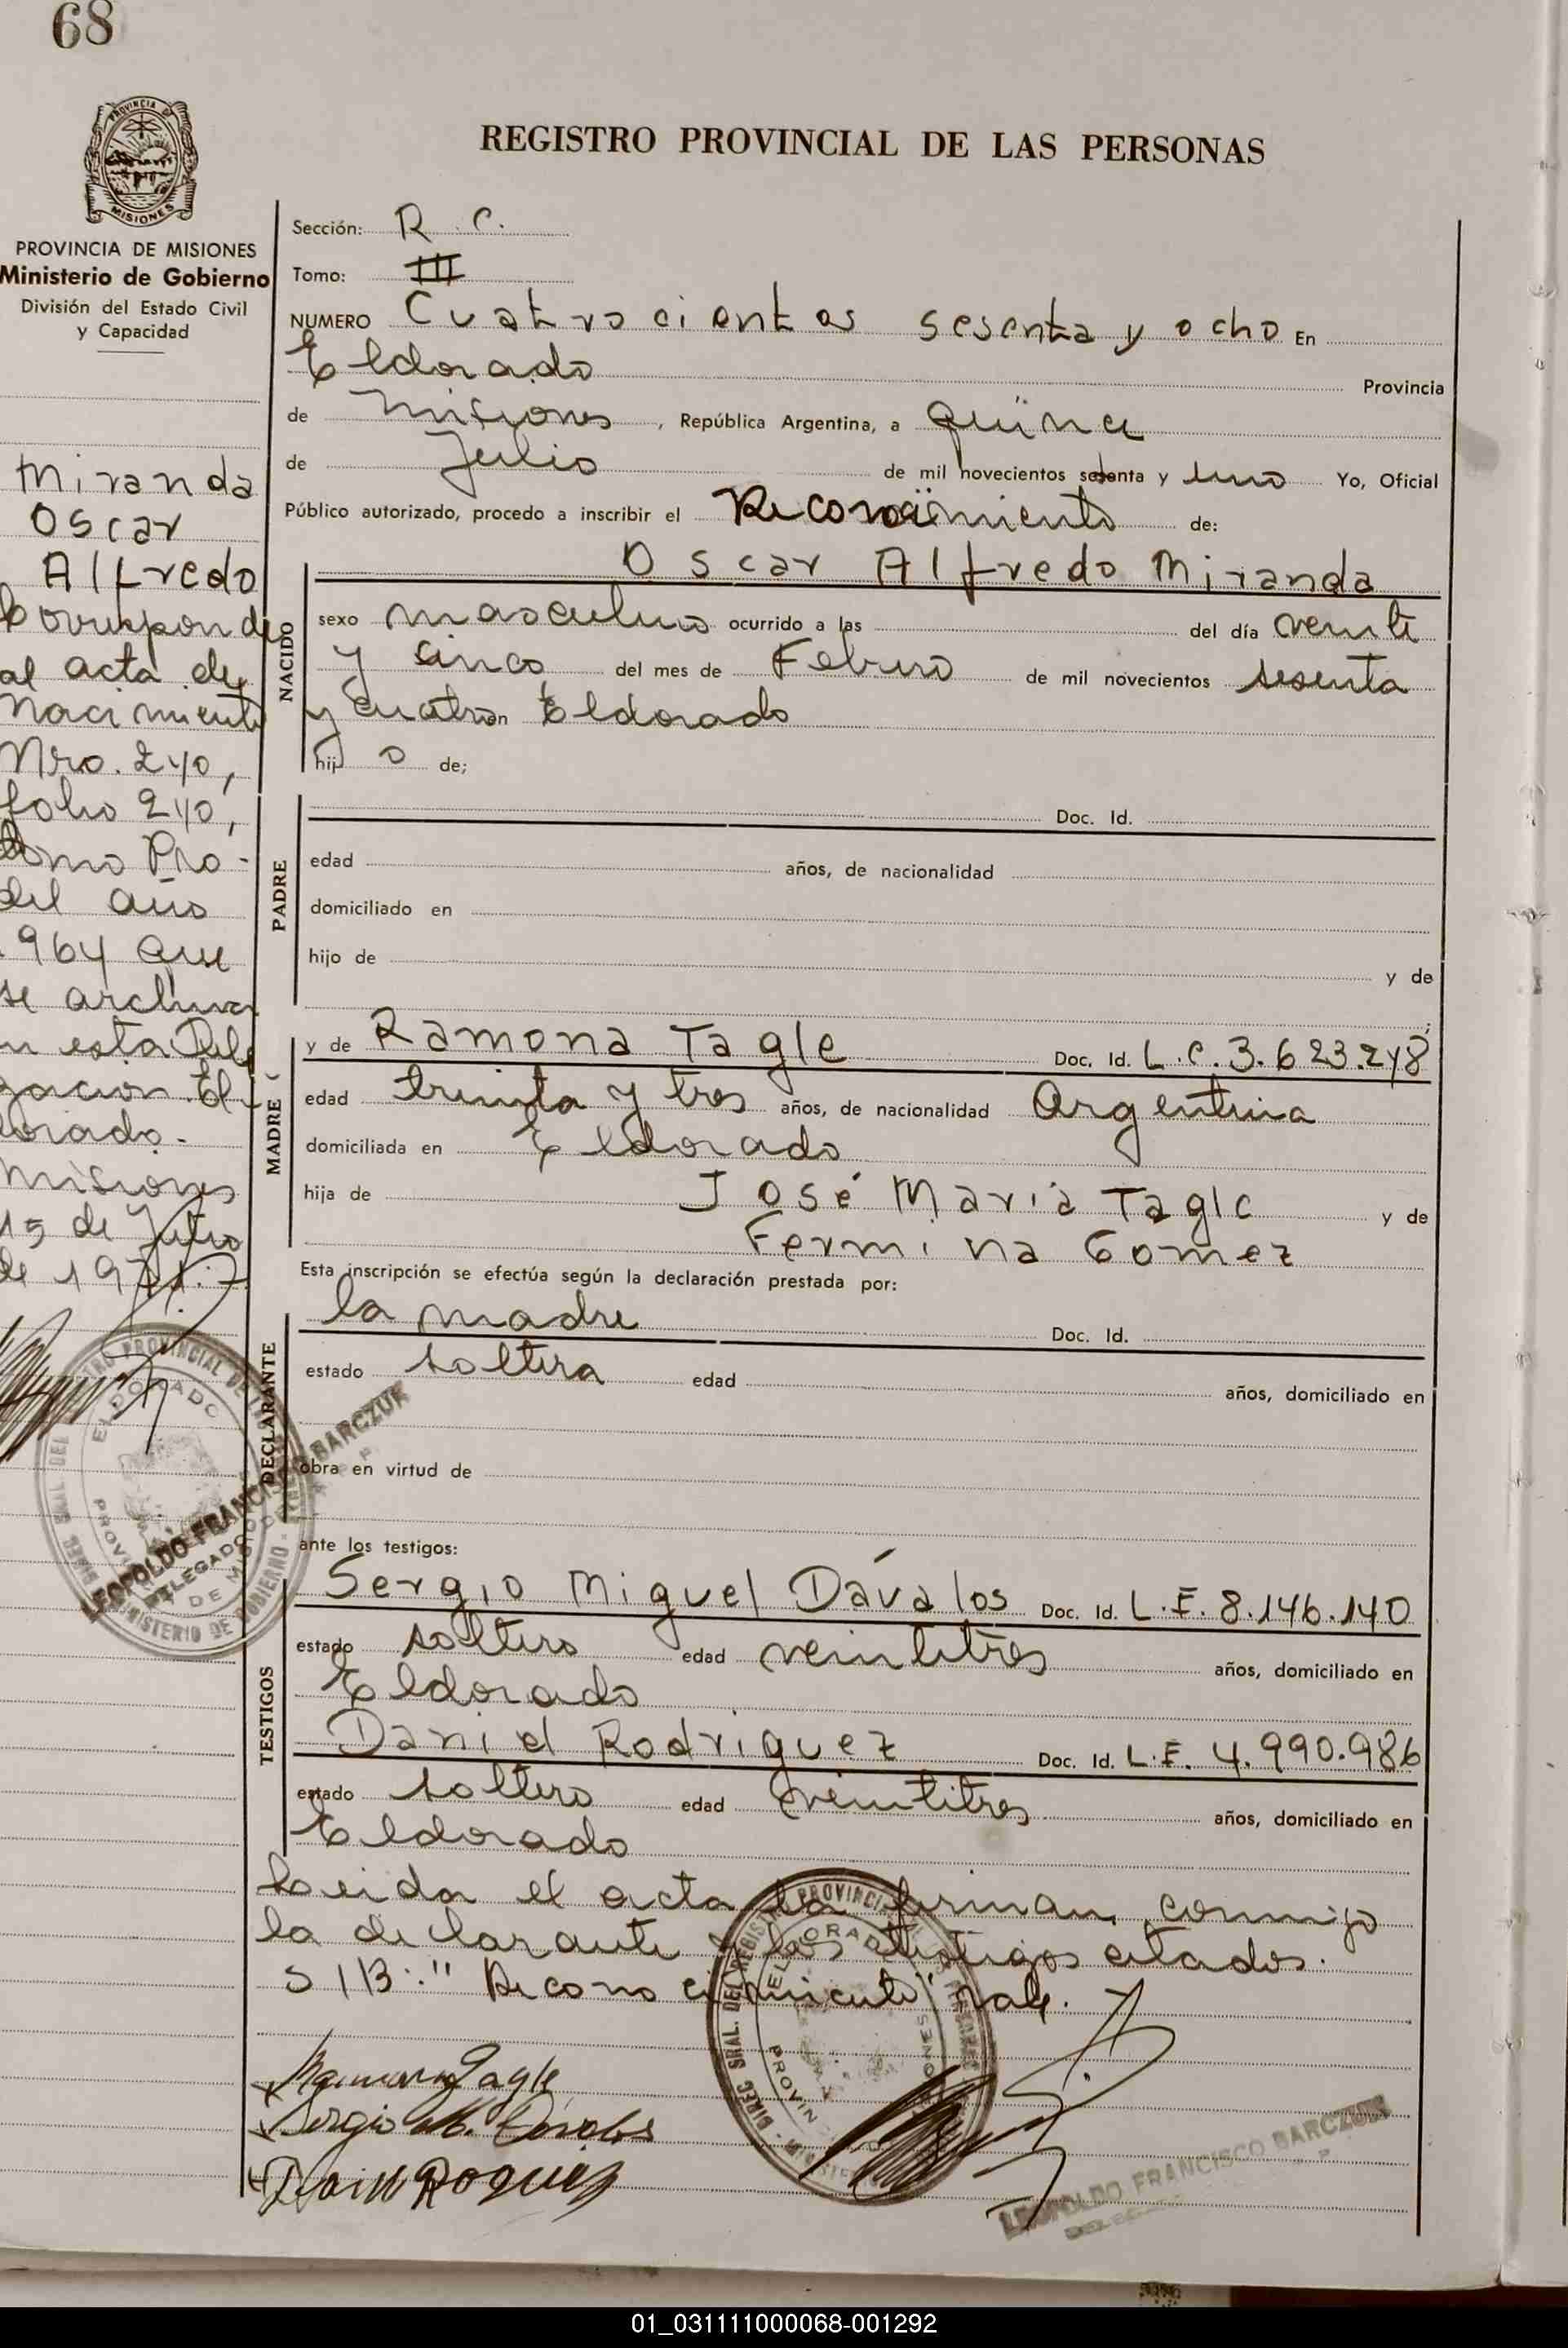 68
PROVINCIA DE
MISIONES
PROVINCIA DE MISIONES
Ministerio de Gobierno
División del Estado Civil
y Capacidad
Miranda
Oscar
Alfredo
Corresponde
al acta de
Nacimiento
Nro. 240,
folio 240,
tomo Pro-
del año
1964 que
se archiva
en esta Dele
gacion El
dorado.-
Misiones
15 de Julio
de 1971.-
REGISTRO PROVINCIAL DE LAS PERSONAS
Sección: R. C.
Tomo: III
NUMERO Cuatrocientos sesenta y ocho En
Eldorado Provincia
de Misiones, República Argentina, a quince
de Julio de mil novecientos setenta y uno Yo, Oficial
Público autorizado, procedo a inscribir el Reconocimiento de:
NACIDO
Oscar Alfredo Miranda
sexo masculino ocurrido a las del día veinti
y cinco del mes de Febrero de mil novecientos sesenta
y cuatro en Eldorado
hijo de;
PADRE
Doc. Id.
edad años, de nacionalidad
domiciliado en
hijo de y de
MADRE
y de Ramona Tagle Doc. Id. L.C. 3.623.248
edad treinta y tres años, de nacionalidad Argentina
domiciliada en Eldorado
hija de José María Tagle y de
Fermina Gomez
Esta inscripción se efectúa según la declaración prestada por:
DECLARANTE
la madre Doc. Id.
estado soltera edad años, domiciliado en
obra en virtud de
ante los testigos:
TESTIGOS
Sergio Miguel Dávalos Doc. Id. L.E. 8.146.140
estado soltero edad veintitres años, domiciliado en
Eldorado
Daniel Rodriguez Doc. Id. L.E. 4.990.986
estado soltero edad veintitres años, domiciliado en
Eldorado
Leida el acta la firman conmigo
la declarante y los testigos citados.
S/B:" Reconocimiento" vale.
Ramona Tagle
Sergio M. Dávalos
LEOPOLDO FRANCISCO BARCZUK
DELEGADO
ELDORADO
MINISTERIO DE GOBIERNO
LEOPOLDO FRANCISCO BARCZUK
01_031111000068-001292